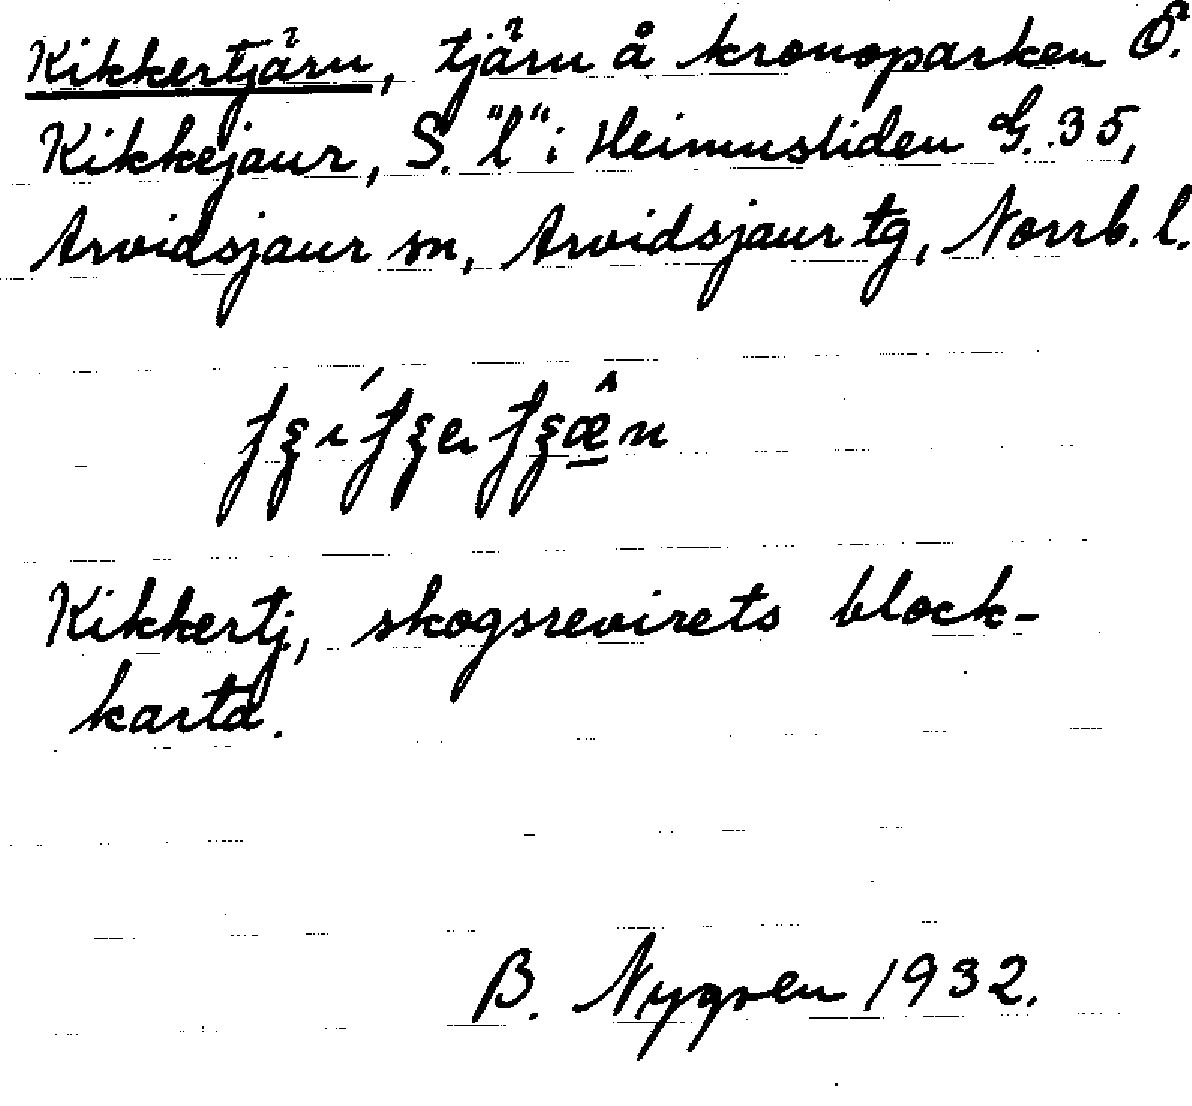 Kikkertjärn, tjärn å kronoparken Ö.
Kikkejaur, S. "l" i Heimusliden G. 35,
Arvidsjaur sn, Arvidsjaur tg, Norrb. l.
Kikkertj, skogsrevirets block-
karta.
B. Nygren 1932.